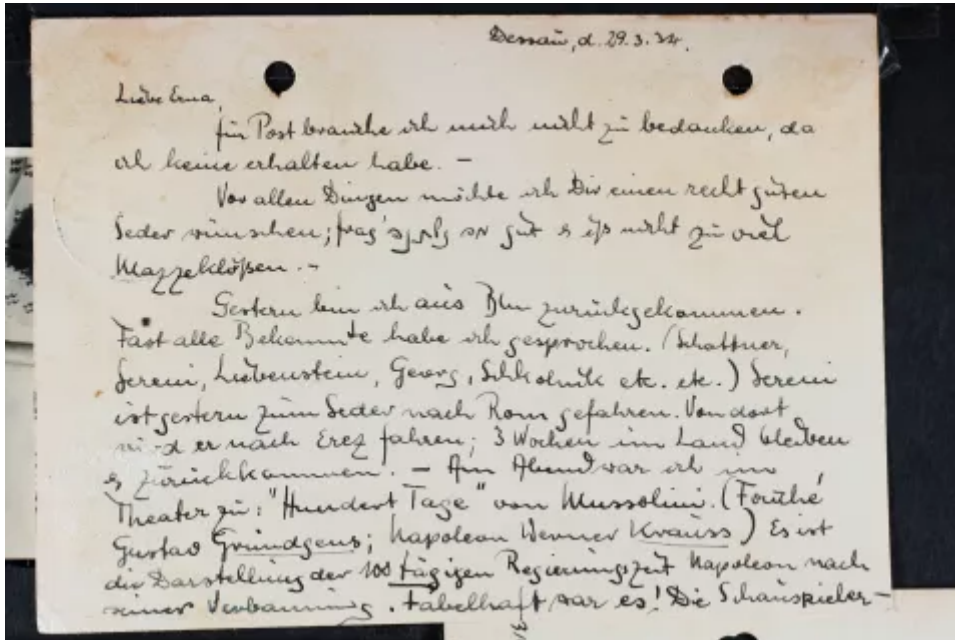 Dessau, d. 29.3.34.
Liebe Erna,
für Post brauche ich mich nicht zu bedanken, da
ich keine erhalten habe. —
Vor allen Dingen möchte ich Dir einen recht guten
Seder wünschen; frag gut & iß nicht zu viel
Mazzeklößen. —
Gestern bin ich aus Bln zurückgekommen.
Fast alle Bekannte habe ich gesprochen. (Schattner,
Sereni, Liebenstein, Georg, Schkolnik etc. etc.) Sereni
ist gestern zum Seder nach Rom gefahren. Von dort
wird er nach Erez fahren; 3 Wochen im Land bleiben
& zurückkommen. — Am Abend war ich im
Theater zu: "Hundert Tage" von Mussolini. (Fouché
Gustav Gründgens; Napoleon Werner Krauss) Es ist
die Darstellung der 100 tägigen Regierungszeit Napoleon nach
seiner Verbannung. Fabelhaft war es! Die Schauspieler-